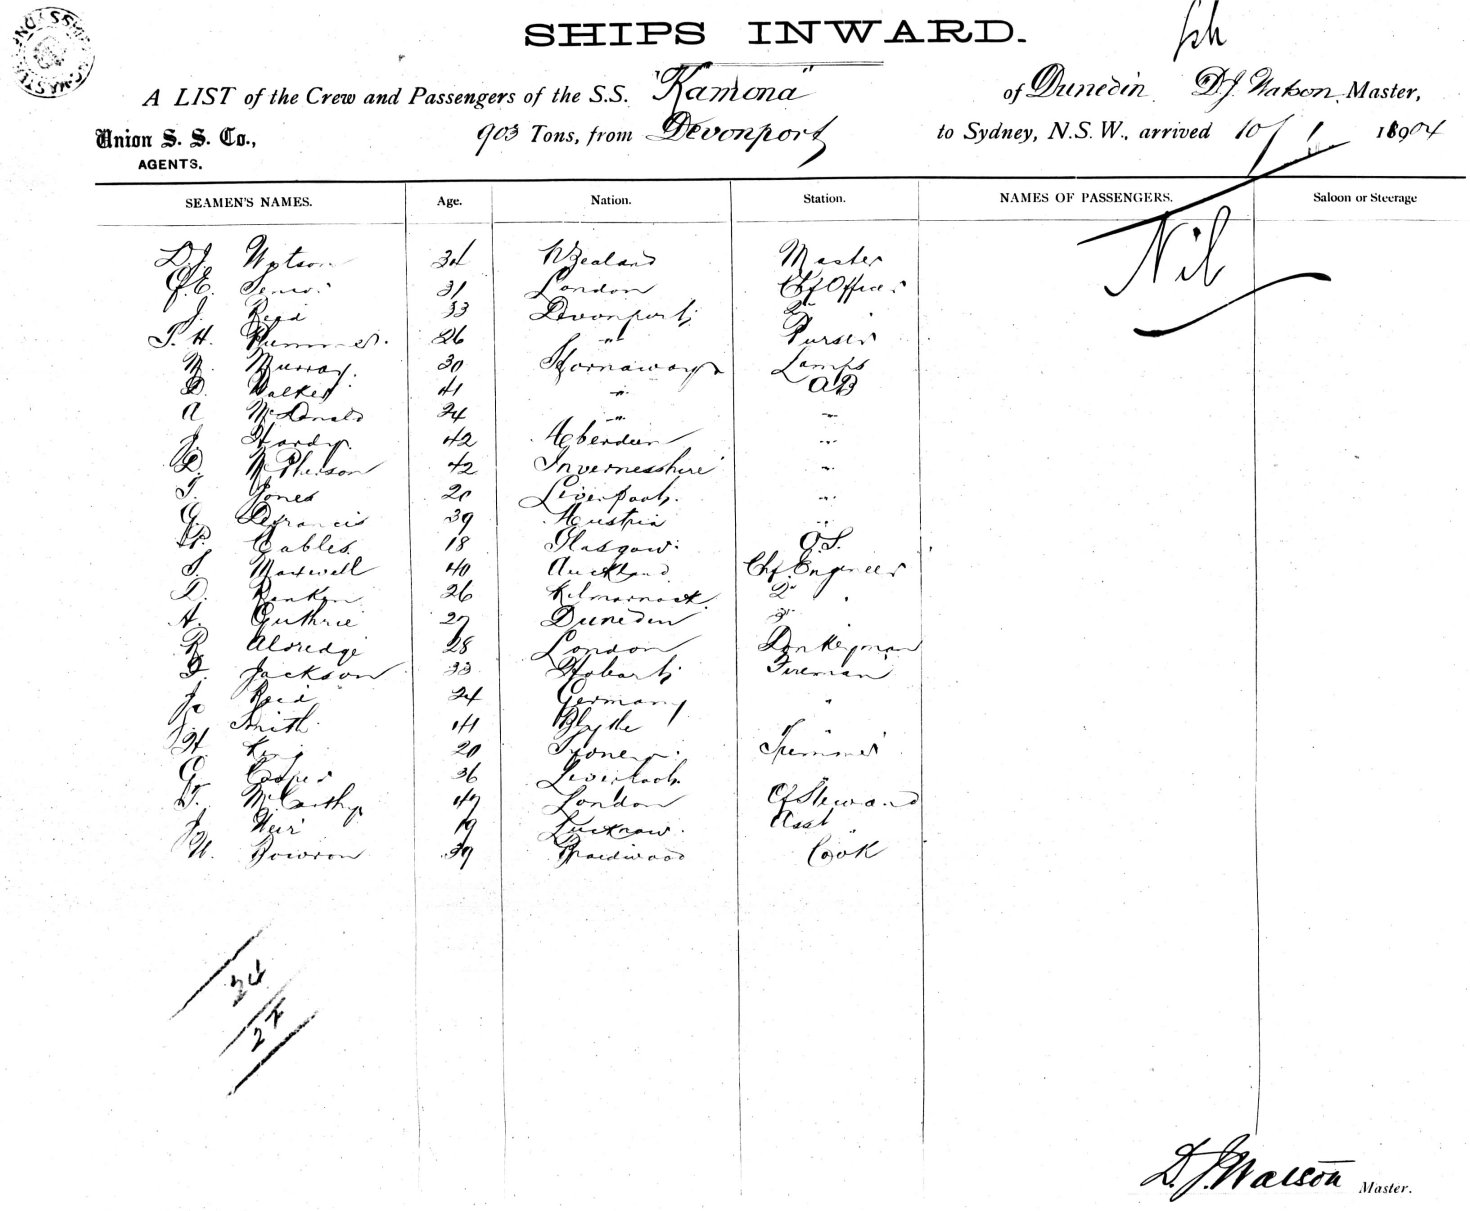 SHIPS INWARD.
A LIST of the Crew and Passengers of the S.S. "Kamona" of Dunedin D.J. Watson, Master,
Union S. S. Co., 903 Tons, from Devonport to Sydney, N.S.W., arrived 10/ 1904
AGENTS.
SEAMEN'S NAMES. Age. Nation. Station. NAMES OF PASSENGERS. Saloon or Steerage
Nil
D.J. Watson 34 N Zealand Master
31 London Chf Officer
J. Reid 33 Devonport 2nd
H. Plummer. 26 " Purser
M. Murray. 30 Stornaway Lamps
D. Walker 41 " AB
A McDonald 24 " "
J. Hardy. 42 Aberdeen "
D. McPherson 42 Invernesshire "
T. Jones 20 Liverpool. "
G. Defrancis 39 Austria "
Cables 18 Glasgow. O.S.
S. Maxwell 40 Auckland Chf Engineer
D. Rankin 26 Kilmarnock. 2nd "
A. Guthrie 27 Dunedin 3rd
R Aldredge 28 London Donkeyman
F. Jackson 33 Hobart Fireman
Reid 24 Germany "
Smith 41 Blythe "
H King 20 Trimmer
G. Cooper 36 Liverpool. "
T. McCarthy 47 London Cf Steward
J. Weir 19 Lucknow. Asst "
W. Bowron 39 Braidwood Cook
24
24
D. J. Watson Master.